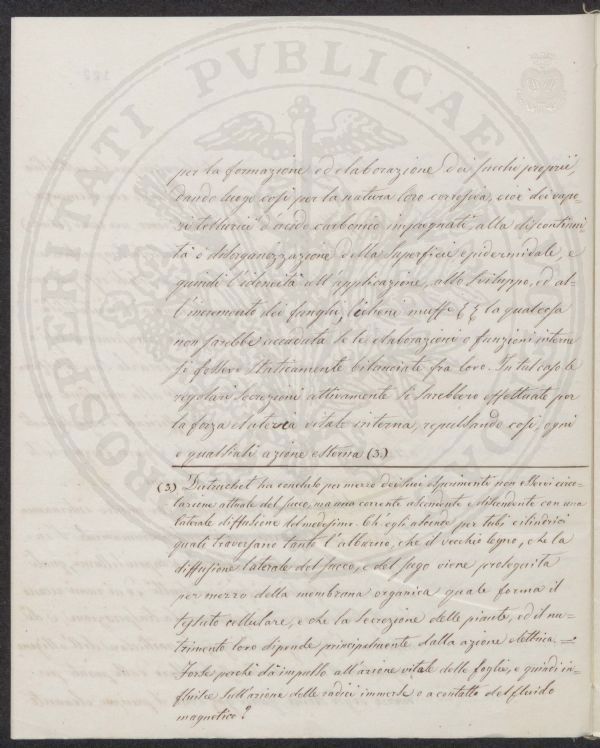 PROSPERITATI PVBLICAE
per la formazione, ed elaborazione dei succhi proprii,
dando luogo così per la natura loro corrosiva, cioè dei vapo-
ri tellurici o acido carbonico impregnati, alla discontinui
tà o disorganizzazione della superficie epidermidale, e
quindi l'idoneità all'applicazione, allo sviluppo, ed al-
l'incremento dei funghi, licheni muffe &.&. la qual cosa
non sarebbe accaduta se le elaborazioni o funzioni interne
si fossero staticamente bilanciate fra loro. In tal caso le
regolari secrezioni attivamente si sarebbero effettuate per
la forza vitale interna, repulsando così, ogni
e qualsiasi azione esterna (3)
(3) Dutrochet ha concluso per mezzo dei suoi esperimenti non esservi circo-
lazione attuale del succo, ma una corrente ascendente e discendente con una
laterale diffusione del medesimo. Ch'egli ascende per tubi cilindrici
quali traversano tanto l'alburno, che il vecchio legno, che la
diffusione laterale del succo, e del sugo viene proseguita
per mezzo della membrana organica quale forma il
tessuto cellulare, e che la secrezione delle piante, ed il nu-
trimento loro dipende principalmente dalla azione elettrica. =
Forse perchè dà impulso all'azione vitale delle foglie, e quindi in-
fluisce sull'azione delle radici immerse o a contatto del fluido
magnetico?